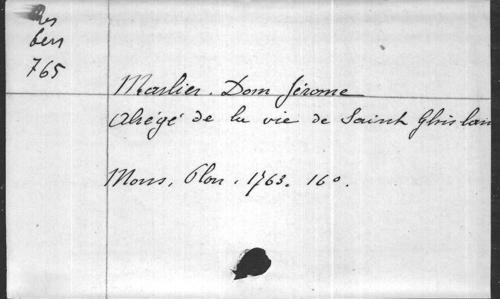 Res
bers
765
Marlier. Dom Jérome
Abrégé de la vie de Saint Ghislain
Mons, Plon. 1763. 16°.